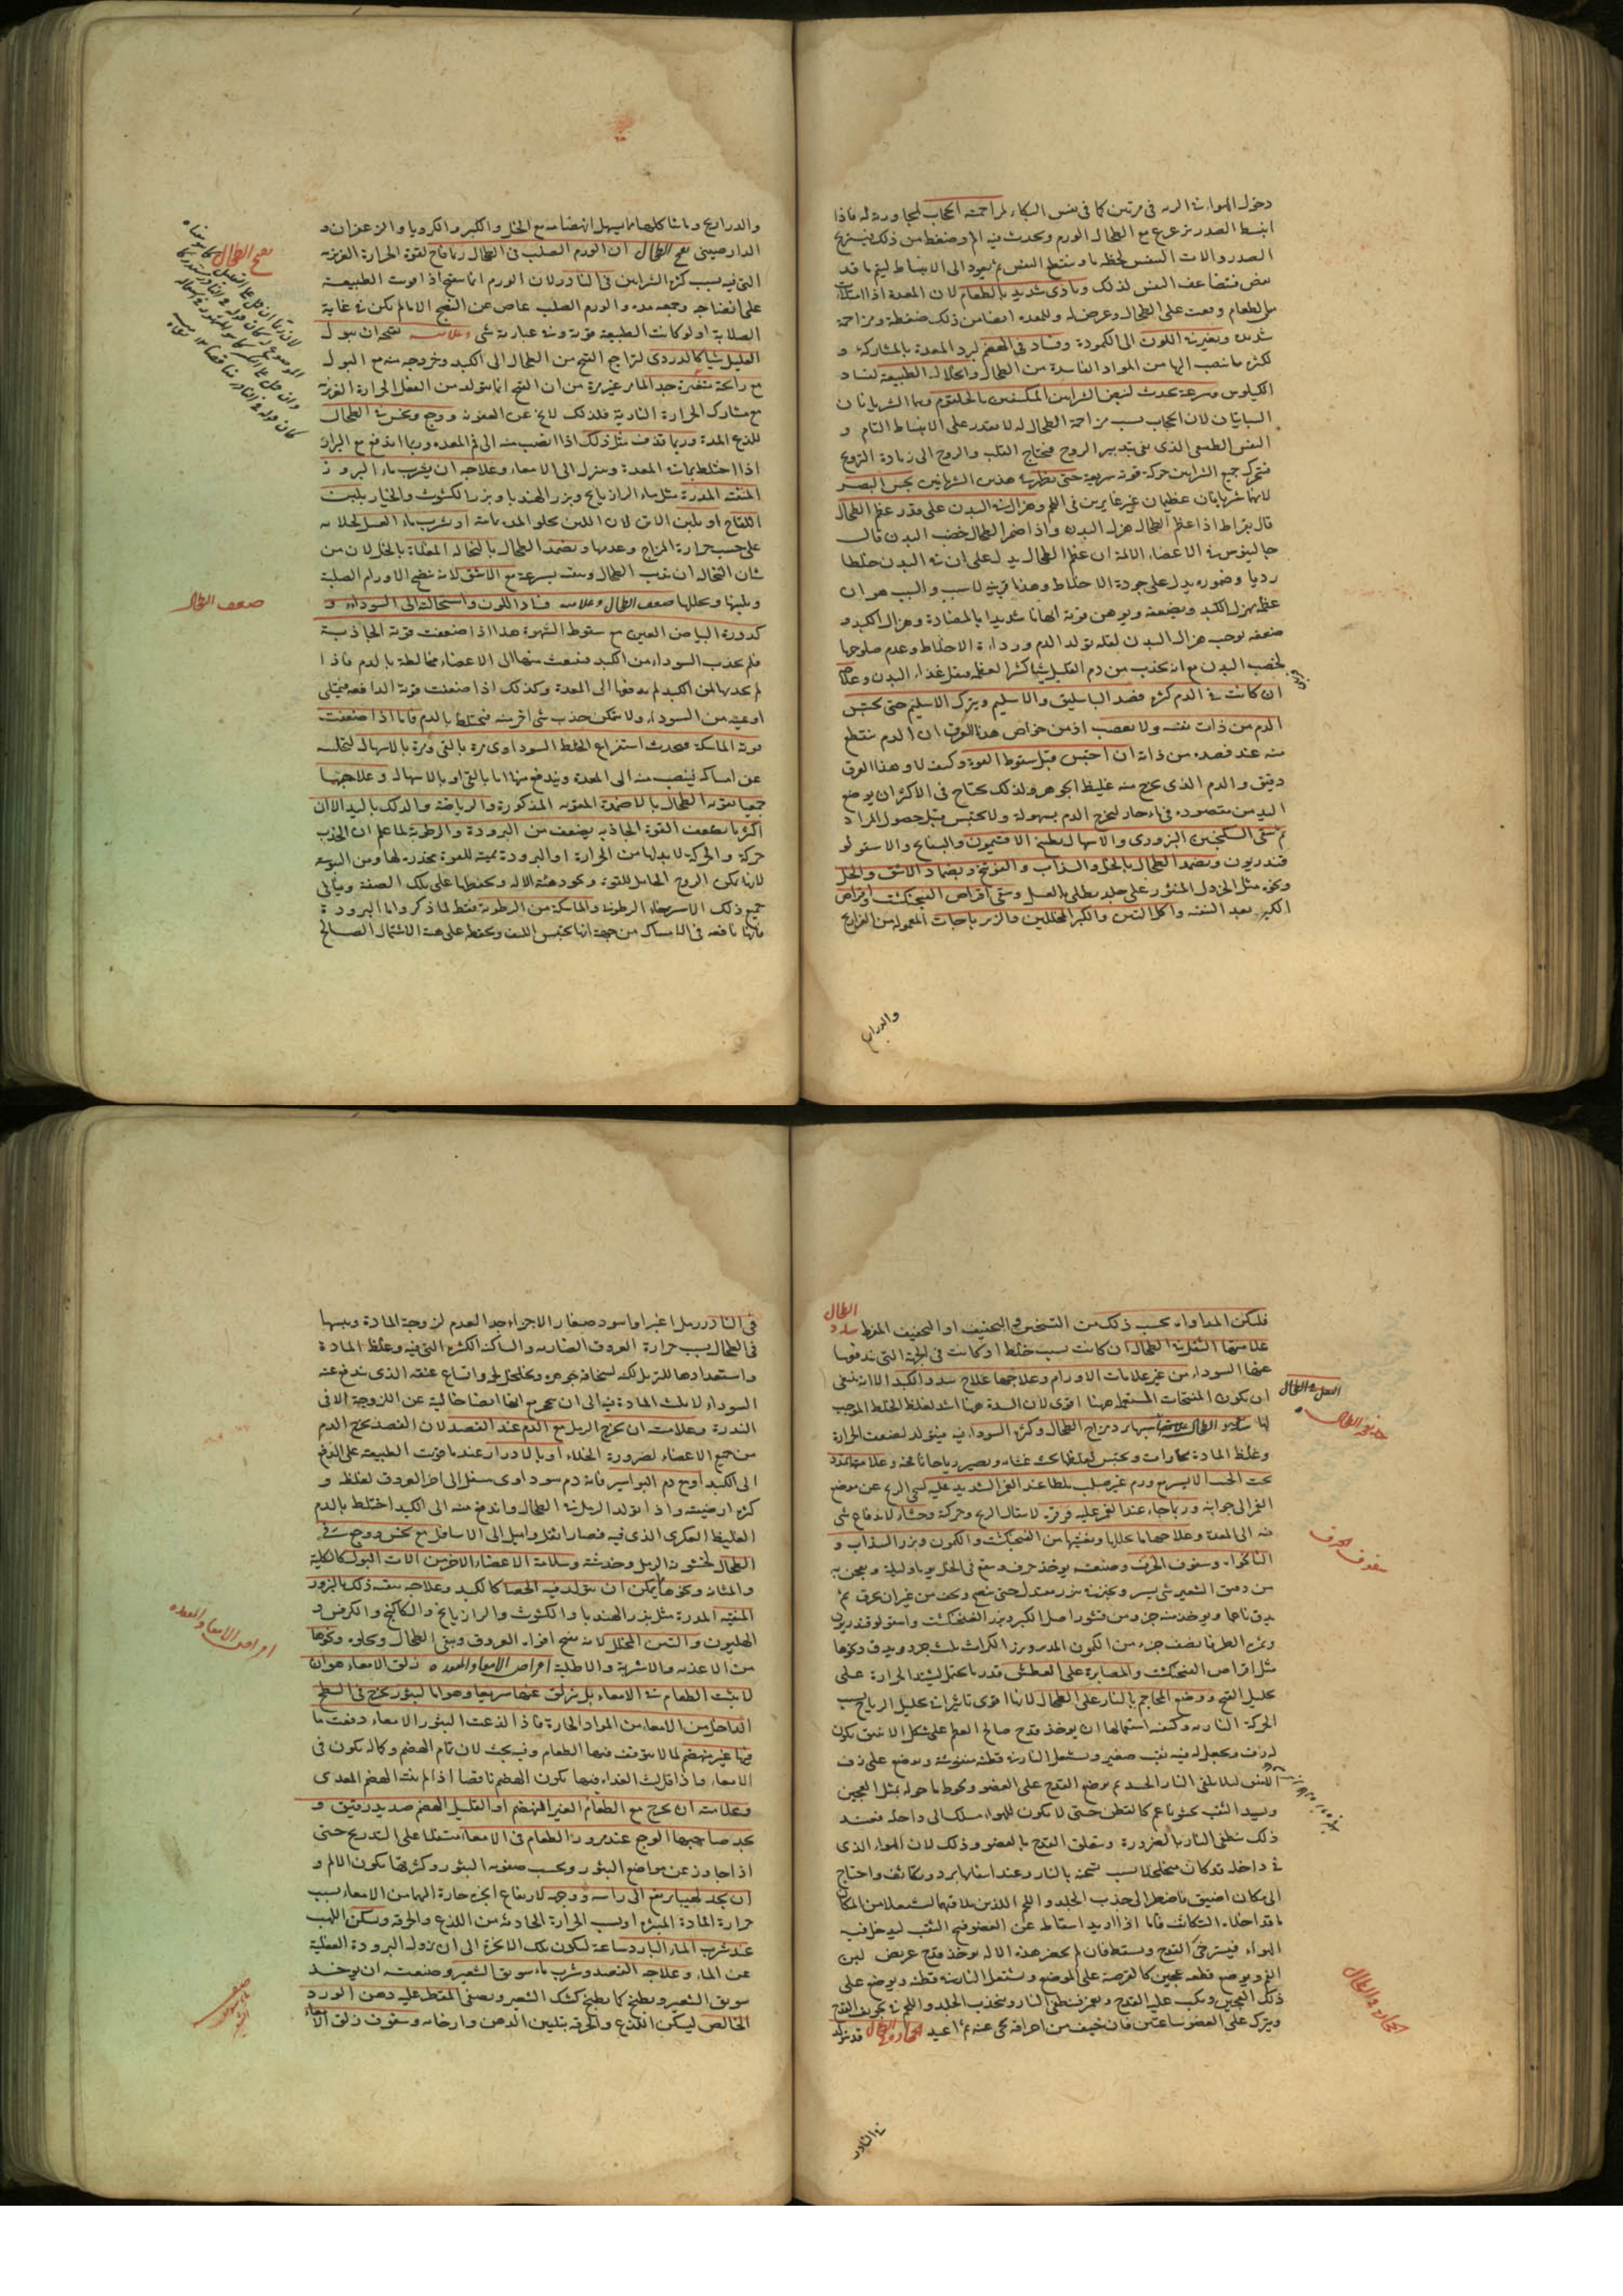 دخول الهواء فى مرتين كما فى نفس البكاء لمزاحمته الحجاب لمجاورته له فاذا
انبسط الصدر تزعزع مع الطحال الورم ويحدث فيه الم وضغط من ذلك فيستريح
الصدر والات النفس لحظة ما وينقطع النفس ثم يعود الى الانبساط ليتم ما قد
نقص فتضاعف النفس لذلك وتأذى شديد بالطعام لان المعدة اذا امتلأت
من الطعام وقعت على الطحال وعرض له وللمعدة ايضا من ذلك ضغطة ومزاحمة
شديدة وتغير اللون الى الكمودة وفساد فى الهضم لبرد المعدة بالمشاركة و
لكثرة ما ينصب اليها من المواد الفاسدة من الطحال وانحلال الطبيعة لفساد
الكيلوس وسرعة تحدث لنبض الشرايين المكتنفين بالحلقوم وهما الشريانان
السباتيان لان الحجاب بسبب مزاحمة الطحال له لا يقدر على الانبساط التام و
النفس الطبيعى الذى يفى بتدبير الروح فيحتاج القلب والروح الى زيادة الترويح
فتتحرك جميع الشرايين حركة قوية سريعة حتى تظهر هذين الشريانين بحس البصر
لانهما شريانان عظيمان غير غايرين فى اللحم وهزال البدن على قدر عظم الطحال
قال بقراط اذا عظم الطحال هزل البدن واذا ضمر الطحال خصب البدن قال
جالينوس فى الاعضاء الالمة ان عظم الطحال يدل على ان فى البدن خلطا
رديا وضموره يدل على جودة الاخلاط وهذا قريب للاسبب والسبب هو ان
عظمه يهزل الكبد ويضعفه ويوهن قوته ايهانا شديدا بالمضادة وهزال الكبد و
ضعفه يوجب هزال البدن لقلة تولد الدم ورداءة الاخلاط وعدم صلوحها
لخصب البدن مع انه يجذب من دم الكبد شيئا كثيرا لعظمه فيقل غذاء البدن وعلاجه
ان كانت فى الدم كثرة فصد الباسليق والاسيلم ويترك الاسيلم حتى يحتبس
الدم من ذات نفسه ولا يعصب اذ من خواص هذا العرق ان الدم ينقطع
منه عند فصده من ذاته ان احتبس قبل سقوط القوة وكيف لا وهذا العرق
دقيق والدم الذى يخرج منه غليظ الجوهر ولذلك يحتاج فى الاكثر ان يوضع
اليد من مفصوده فى ماء حار ليخرج الدم بسهولة ولا يحتبس قبل حصول المراد
ثم سقى السكنجبين البزورى والاسهال بطبيخ الافتيمون والبسفايج والاسقولو
قندريون وتضمد الطحال بالخل والسذاب والفوتنج وبضماد الاشق والخل
ونحوه مثل الخردل المنثور على جلد يطلى بالعسل وسقى اقراص الفنجنكشت واقراص
الكبر بعد التنقية واكل التين والكبر المخللين والزيرباجات المعمولة من الفراريج
والدراج
والدراريج وما شاكلهما مما يسهل انهضامه مع الخل والكبر والكرويا والزعفران و
الدارصينى تقيح الطحال ان الورم الصلب فى الطحال ربما قاح لقوة الحرارة الغريزية
التى فيه بسبب كثرة الشرايين فى النادر لان الورم انما يتقيح اذا قويت الطبيعة
على انضاجه وجمعه مدة والورم الصلب عاص عن النضج الا ما لم يكن فى غاية
الصلابة او لو كانت الطبيعة قوية وفى عبارته شى وعلامة تقيحه ان يبول
العليل شيئا كالدردى لتراجع القيح من الطحال الى الكبد وخروجه منه مع البول
مع رائحة متغيرة جدا لما مر غير مرة من ان القيح انما يتولد من العفن الحرارة الغريزية
مع مشاركة الحرارة النارية فلذلك لا يخ عن العفونة ووجع ونخس فى الطحال
للذع المدة وربما تقذف مثل ذلك اذا انصب منه الى فم المعدة وربما اندفع مع البراز
اذا اختلط بما فى المعدة ونزل الى الامعاء وعلاجه ان يشرب ماء البزور
المنقية المدرة مثل ماء الرازيانج وبزر الهندبا وبزر الكشوث والخيار بلبن
اللقاح او بلبن الاتن لان اللبن يجلو المدة بمائيته او بشرب ماء العسل لجلائه
على حسب حرارة المزاج وعدمها وتضمد الطحال بالنخالة المغلاة بالخل لان من
شان النخالة ان تذيب الطحال ويفشه بسرعة مع الاشق لانه ينضج الاورام الصلبة
ويلينها ويحللها ضعف الطحال وعلامته فساد اللون واستحالته الى السواد و
كدورة البياض العين مع سقوط الشهوة هذا اذا ضعفت قوته الجاذبة
فلم يجذب السوداء من الكبد فتبعث منها الى الاعضاء مخالطة بالدم فاذا
لم يجذبها من الكبد لم يدفعها الى المعدة وكذلك اذا ضعفت قوته الدافعة فيمتلى
اوعيته من السوداء ولا يمكن جذب شى اخر منه فيختلط بالدم فاما اذا ضعفت
قوته الماسكة فيحدث استفراغ الخلط السوداوى مرة بالقى ومرة بالاسهال لتخليه
عن امساكه فينصب منه الى المعدة ويندفع منها اما بالقى او بالاسهال وعلاجها
جميعا تقوية الطحال بالاضمدة المقوية المذكورة والرياضة والدلك باليد الا ان
اكثر ما يضعف القوة الجاذبة يضعف من البرودة والرطوبة لما علم ان الجذب
حركة والحركة لا بد لها من الحرارة او البرودة مميتة للقوة مخدرة لها ومن اليبوسة
لانها تمكن الروح الحامل للقوة وتجود هيئة الالة وتحفظها على تلك الصفة وينافى
جميع ذلك الاسترخاء الرطوبة والماسكة من الرطوبة فقط لما ذكر واما البرودة
فانها نافعة فى الامساك من جهة انها تحبس الليف وتحفظه على هيئة الاشتمال الصالح
تقيح الطحال
ضعف الطحال
فلكن المداواة بحسب ذلك من التسخين والتجفيف او التجفيف المفرط سدد
الطحال
علامتها الثقل فى الطحال ان كانت بسبب خلط او كانت فى الجهة التى يدفع بها
عنها السوداء من غير علامات الاورام وعلاجها علاج سدد الكبد الا انه ينبغى
ان يكون المفتحات المستعملة ههنا اقوى لان السدة ههنا اشد لغلظ الخلط الموجب
لها نفخة الطحال سببها برد مزاج الطحال وكثرة السوداء فيه فيتولد لضعف الحرارة
وغلظ المادة بخارات وتحتبس لغلظها تحت غشائه وتصير رياحا نافخة وعلامتها تمدد
تحت الجنب الايسر مع ورم غير صلب يتطامن عند الغمز الشديد عليه لتنحى الريح عن موضع
الغمز الى جوانبه وربما جاء عند الغمز عليه قرقرة لانتقال الريح وحركته وجشاء لاندفاع شى
منه الى المعدة وعلاجها ما يحللها ويفشيها من الفنجنكشت والكمون وبزر السذاب و
النانخواه وسفوف الحرف وصنعته يوخذ حرف وينقع فى الخل يوما وليلة ويعجن به
من دقيق الشعير شى يسير ويخبز فى تنور معتدل حتى ينضج ويجف من غير ان يحرق ثم
يدق ناعما ويوخذ منه جزء ومن قشور اصل الكبر وبزر الفنجنكشت واسقولوقندريون
وثمرة الطرفا نصف جزء من الكمون المدبر وبزر الكراث ثلث جزء ويدق ونحوها
مثل اقراص الفنجنكشت والمصابرة على العطش قدر ما يحتمل لتشتد الحرارة على
تحليل النفخ ووضع المحاجم بالنار على الطحال لانها اقوى تاثيرا فى تحليل الرياح بسبب
الحركة النارية وكيفية استعمالها ان يوخذ قدح صالح العظم على شكل الانبيق يكون
له زق ويجعل له فيه ثقب صغير ويشعل النار فى قطنة منفوشة ويوضع على زق
القدس لئلا يلقى النار الجسد ثم يوضع القدح على العضو ويحوط ما حوله بمثل العجين
ويسد الثقب بحشو ناعم كالقطن حتى لا يكون للهواء مسلك الى داخله فعند
ذلك تنطفى النار بالضرورة ويتعلق القدح بالعضو وذلك لان الهواء الذى
فى داخله قد كان متخلخلا بسبب تسخنه بالنار وعند انطفائها يبرد ويتكاثف واحتاج
الى مكان اضيق فاضطر الى جذب الجلد واللحم اللذين يلاقيهما ليشغلا من المكان
ما قد اخلاه التكاثف فاما اذا اريد اسقاطه عن العضو فتح الثقب ليدخل فيه
الهواء فيسترخى القدح ويسقط فان لم يحضر هذه الالة يوخذ قدح عريض لين
الفم ويوضع قطعة عجين كالقرصة على الموضع ويشعل النار فى قطنة ويوضع على
ذلك العجين ويكب عليه القدح ويغمز فتنطفى النار وينجذب الجلد واللحم فى تجويف القدح
ويترك على العضو ساعتين فان خيف من احراقه نحى عنه ثم اعيد الحجارة فى الطحال قد يتولد
نفخة الطحال
سفوف الحرف
الحجارة فى الطحال
فى النادر
فى النادر رمل اغبر او اسود صغار الاجزاء جدا لعدم لزوجة المادة ويبسها
فى الطحال بسبب حرارة العروق الضاربة والساكنة الكثيرة التى فيه وغلظ المادة
واستعدادها للترمل لكنه لسخافة جوهره وتخلخل لحمه واتساع عنقه الذى يندفع عنه
السوداء لا يلبث المادة فيه الى ان تتحجر مع انها ايضا خالية عن اللزوجة الا فى
الندرة وعلامته ان يخرج الرمل مع الدم عند الفصد لان الفصد يخرج الدم
من جميع الاعضاء لضرورة الخلاء او بالادرار عند ما قويت الطبيعة على الدفع
الى الكبد او مع دم البواسير فانه دم سوداوى يسفل الى افواه العروق لغلظه و
كثرة ارضيته واذا تولد الرمل فى الطحال واندفع منه الى الكبد اختلط بالدم
الغليظ العكرى الذى فيه فصار اثقل واميل الى الاسافل مع نخس ووجع فى
الطحال لخشونة الرمل وخدشه وسلامة الاعضاء الاخر من الات البول كالكلية
والمثانة ونحوها يمكن ان يتولد فيه الحصا كالكبد وعلاجه تنقيته ذلك بالبزور
المنقية المدرة مثل بزر الهندبا والكشوث والرازيانج والكاكنج والكرفس و
الهليون والتين المخلل لانه يفتح افواه العروق وينقى الطحال ويجلوه ونحوها
من الاغذية والاشربة والاطلية امراض الامعاء والمعدة زلق الامعاء هو ان
لا يثبت الطعام فى الامعاء بل يزلق عنها سريعا وهو اما لبثور تخرج فى السطح
الداخل من الامعاء من المواد الحارة فاذا لذعت البثور الامعاء دفعت ما
فيها غير منهضم لما لا يتوقف فيها الطعام وفيه بحث لان تمام الهضم وكماله يكون فى
الامعاء فاذا قل لبث الغذاء فيها يكون الهضم ناقصا اذا لم يفت الهضم المعدى
وعلامته ان يخرج مع الطعام الغير المنهضم او القليل الهضم صديد رقيق و
يجد صاحبها الوجع عند مرور الطعام فى الامعاء منتقلا على التدريج حتى
اذا جاوز عن مواضع البثور وبحسب صعوبة البثور وكثرتها يكون الالم و
ان يجد لهيبا يرتفع الى راسه ووجهه لارتفاع ابخرة حارة اليهما من الامعاء بسبب
حرارة المادة المبثرة او بسبب الحرارة الحادثة من اللذع والحرقة ويسكن اللهب
عند شرب الماء البارد ساعة لسكون تلك الابخرة الى ان تزول البرودة الفعلية
عن الماء وعلاجه الفصد وشرب ماء سويق الشعير وصنعته ان يوخذ
سويق الشعير ويطبخ كما يطبخ كشك الشعير ويصفى المقطر عليه دهن الورد
الخالص ليسكن اللذع والحرقة بتليين الدهن وارخائه وسفوف زلق الامعاء
امراض الامعاء والمعدة